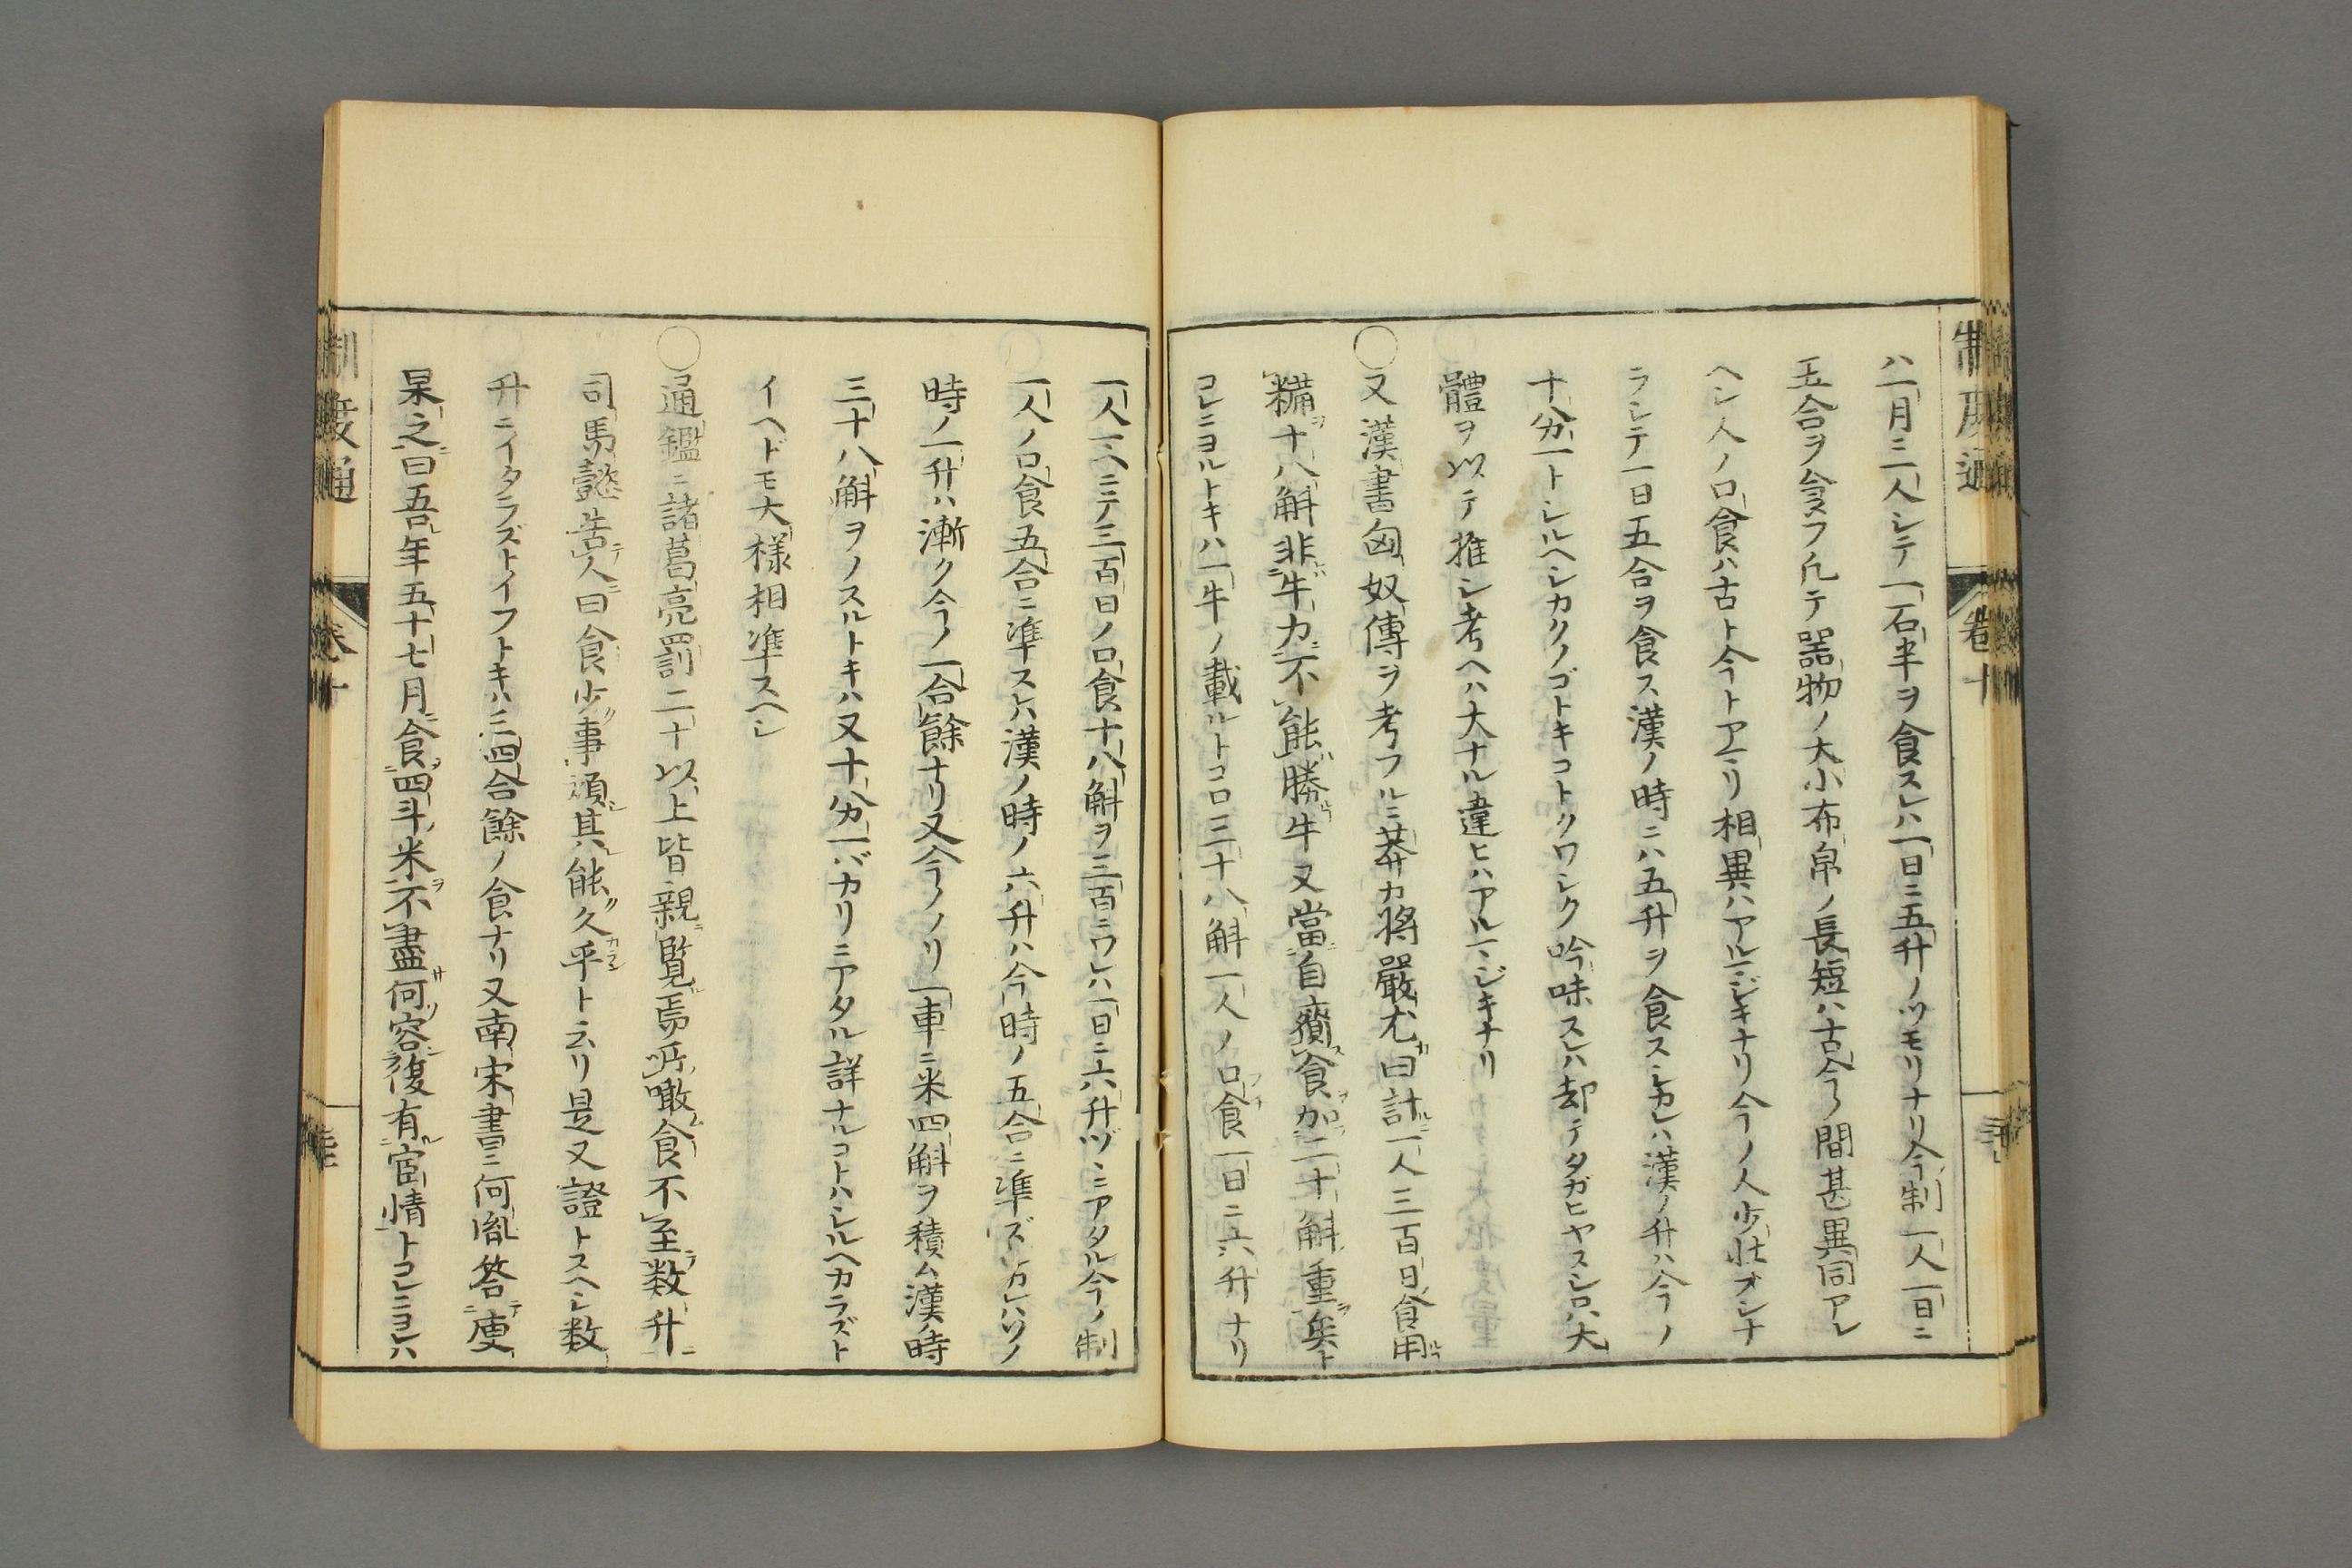 制度通
卷十
ハ一月三人シテ一石半ヲ食スレハ一日ニ五升ノツモリナリ今制一人一日ニ
五合ヲ食フ凡テ器物ノ大小布帛ノ長短ハ古今ノ間甚異同アレ
ヘシ人ノ口食ハ古ト今トアマリ相異ハアルマジキナリ今ノ人少壮オシナ
ラシテ一日五合ヲ食ス漢ノ時ニハ五升ヲ食スシカレハ漢ノ升ハ今ノ
十分一トシルヘシカクノゴトキコトクワシク吟味スレハ却テタガヒヤスシ只大
體ヲ以テ推シ考ヘハ大ナル違ヒハアルマジキナリ
○又漢書匈奴傳ヲ考フルニ莽カ將嚴尤曰計一人三百日食用
糒十八斛非牛力不能勝牛又當自齎食加二十斛重矣ト
コレニヨルトキハ一牛ノ載ルトコロ三十八斛一人ノ口食一日ニ六升ナリ
一人ニテ三百日ノ口食十八斛ヲ三百ニワレハ一日ニ六升ヅヽニアタル今ノ制
一人ノ口食五合ニ準スレハ漢ノ時ノ六升ハ今時ノ五合ニ準ズ
時ノ一升ハ漸ク今ノ一合餘ナリ又今ノノリ一車ニ米四斛ヲ積ム漢ノ時
三十八斛ヲノスルトキハ又十分一バカリニアタル詳ナルコトハシルヘカラズト
イヘドモ大樣相準スヘシ
○通鑑ニ諸葛亮罰二十以上皆親覧焉所噉食不至数升
司馬懿告人曰食少事煩其能久乎ト云リ是又證トスヘシ数
升ニイタラズトイフトキハ三四合餘ノ食ナリ又南宋書ニ何胤答庾
杲之曰吾年五十七月食四斗米不盡何容復有宦情トコレニヨレハ
制度通
卷十